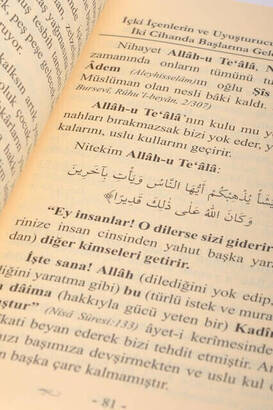 İçki İçenlerin ve Uyuşturucu
İki Cihanda Başlarına Gel
Nihayet Allâh-u Te‘âlâ, N
zamanında onların tümünü t
Âdem (Aleyhisselâm)ın oğlu Şîs
Müslüman olan nesli bâki kaldı.
Bursevî, Rûhu'l-beyân, 2/307)
Allâh-u Te‘âlâ'nın kulu mu y
nahları bırakmazsak bizi yok eder, y
kalarını, uslu kullarını geçirir.
Nitekim Allah-u Te‘âlâ:
يَشَأْ يُذْهِبْكُمْ أَيُّهَا النَّاسُ وَيَأْتِ بِآخَرِينَ
وَكَانَ اللّٰهُ عَلٰى ذٰلِكَ قَدِيرًا﴾
"Ey insanlar! O dilerse sizi giderir
rinize insan cinsinden yahut başka yara
dan) diğer kimseleri getirir.
İşte sana! Allâh (dilediğini yok edip,
diğini yaratma gibi) bu (türlü istek ve mura
dâima (hakkıyla gücü yeten bir) Kadîr
uştur" (Nisâ Sûresi:133) âyet-i kerîmesinde
kati beyan ederek bizi tehdit etmiştir. Ar
ızı başımıza devşirmekten ve uslu kul o
n başka çare kalmamıştır.
- 81 -